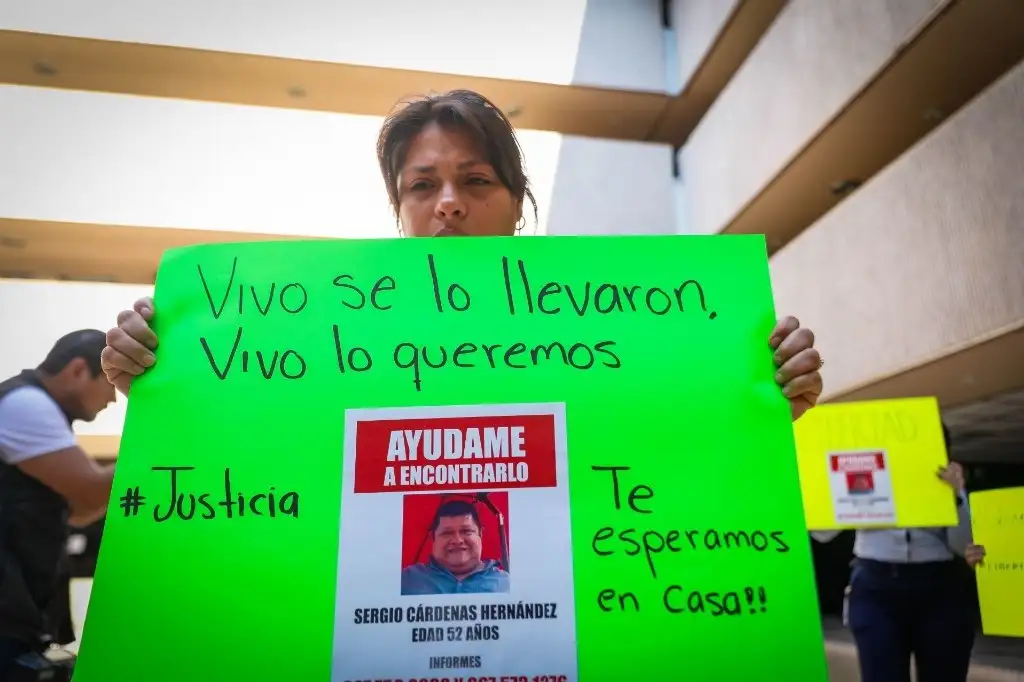 Vivo se lo llevaron,
Vivo lo queremos
#Justicia
AYUDAME
A ENCONTRARLO
SERGIO CÁRDENAS HERNÁNDEZ
EDAD 52 AÑOS
INFORMES
Te
esperamos
en Casa!!
AYUDAME